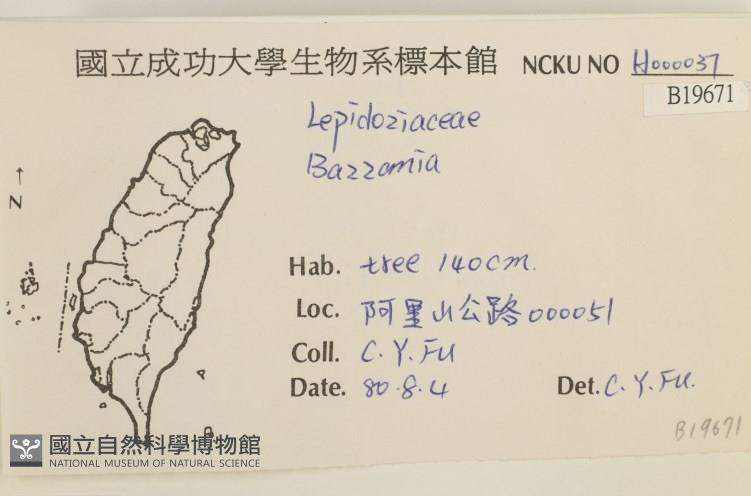 國立成功大學生物系標本館 NCKU NO H000037
B19671
Lepidoziaceae
Bazzamia
N
Hab. tree 140cm.
Loc. 阿里山公路000051
Coll. C.Y.FU
Date. 80.8.4 Det. C.Y.FU.
B19671
國立自然科學博物館
NATIONAL MUSEUM OF NATURAL SCIENCE